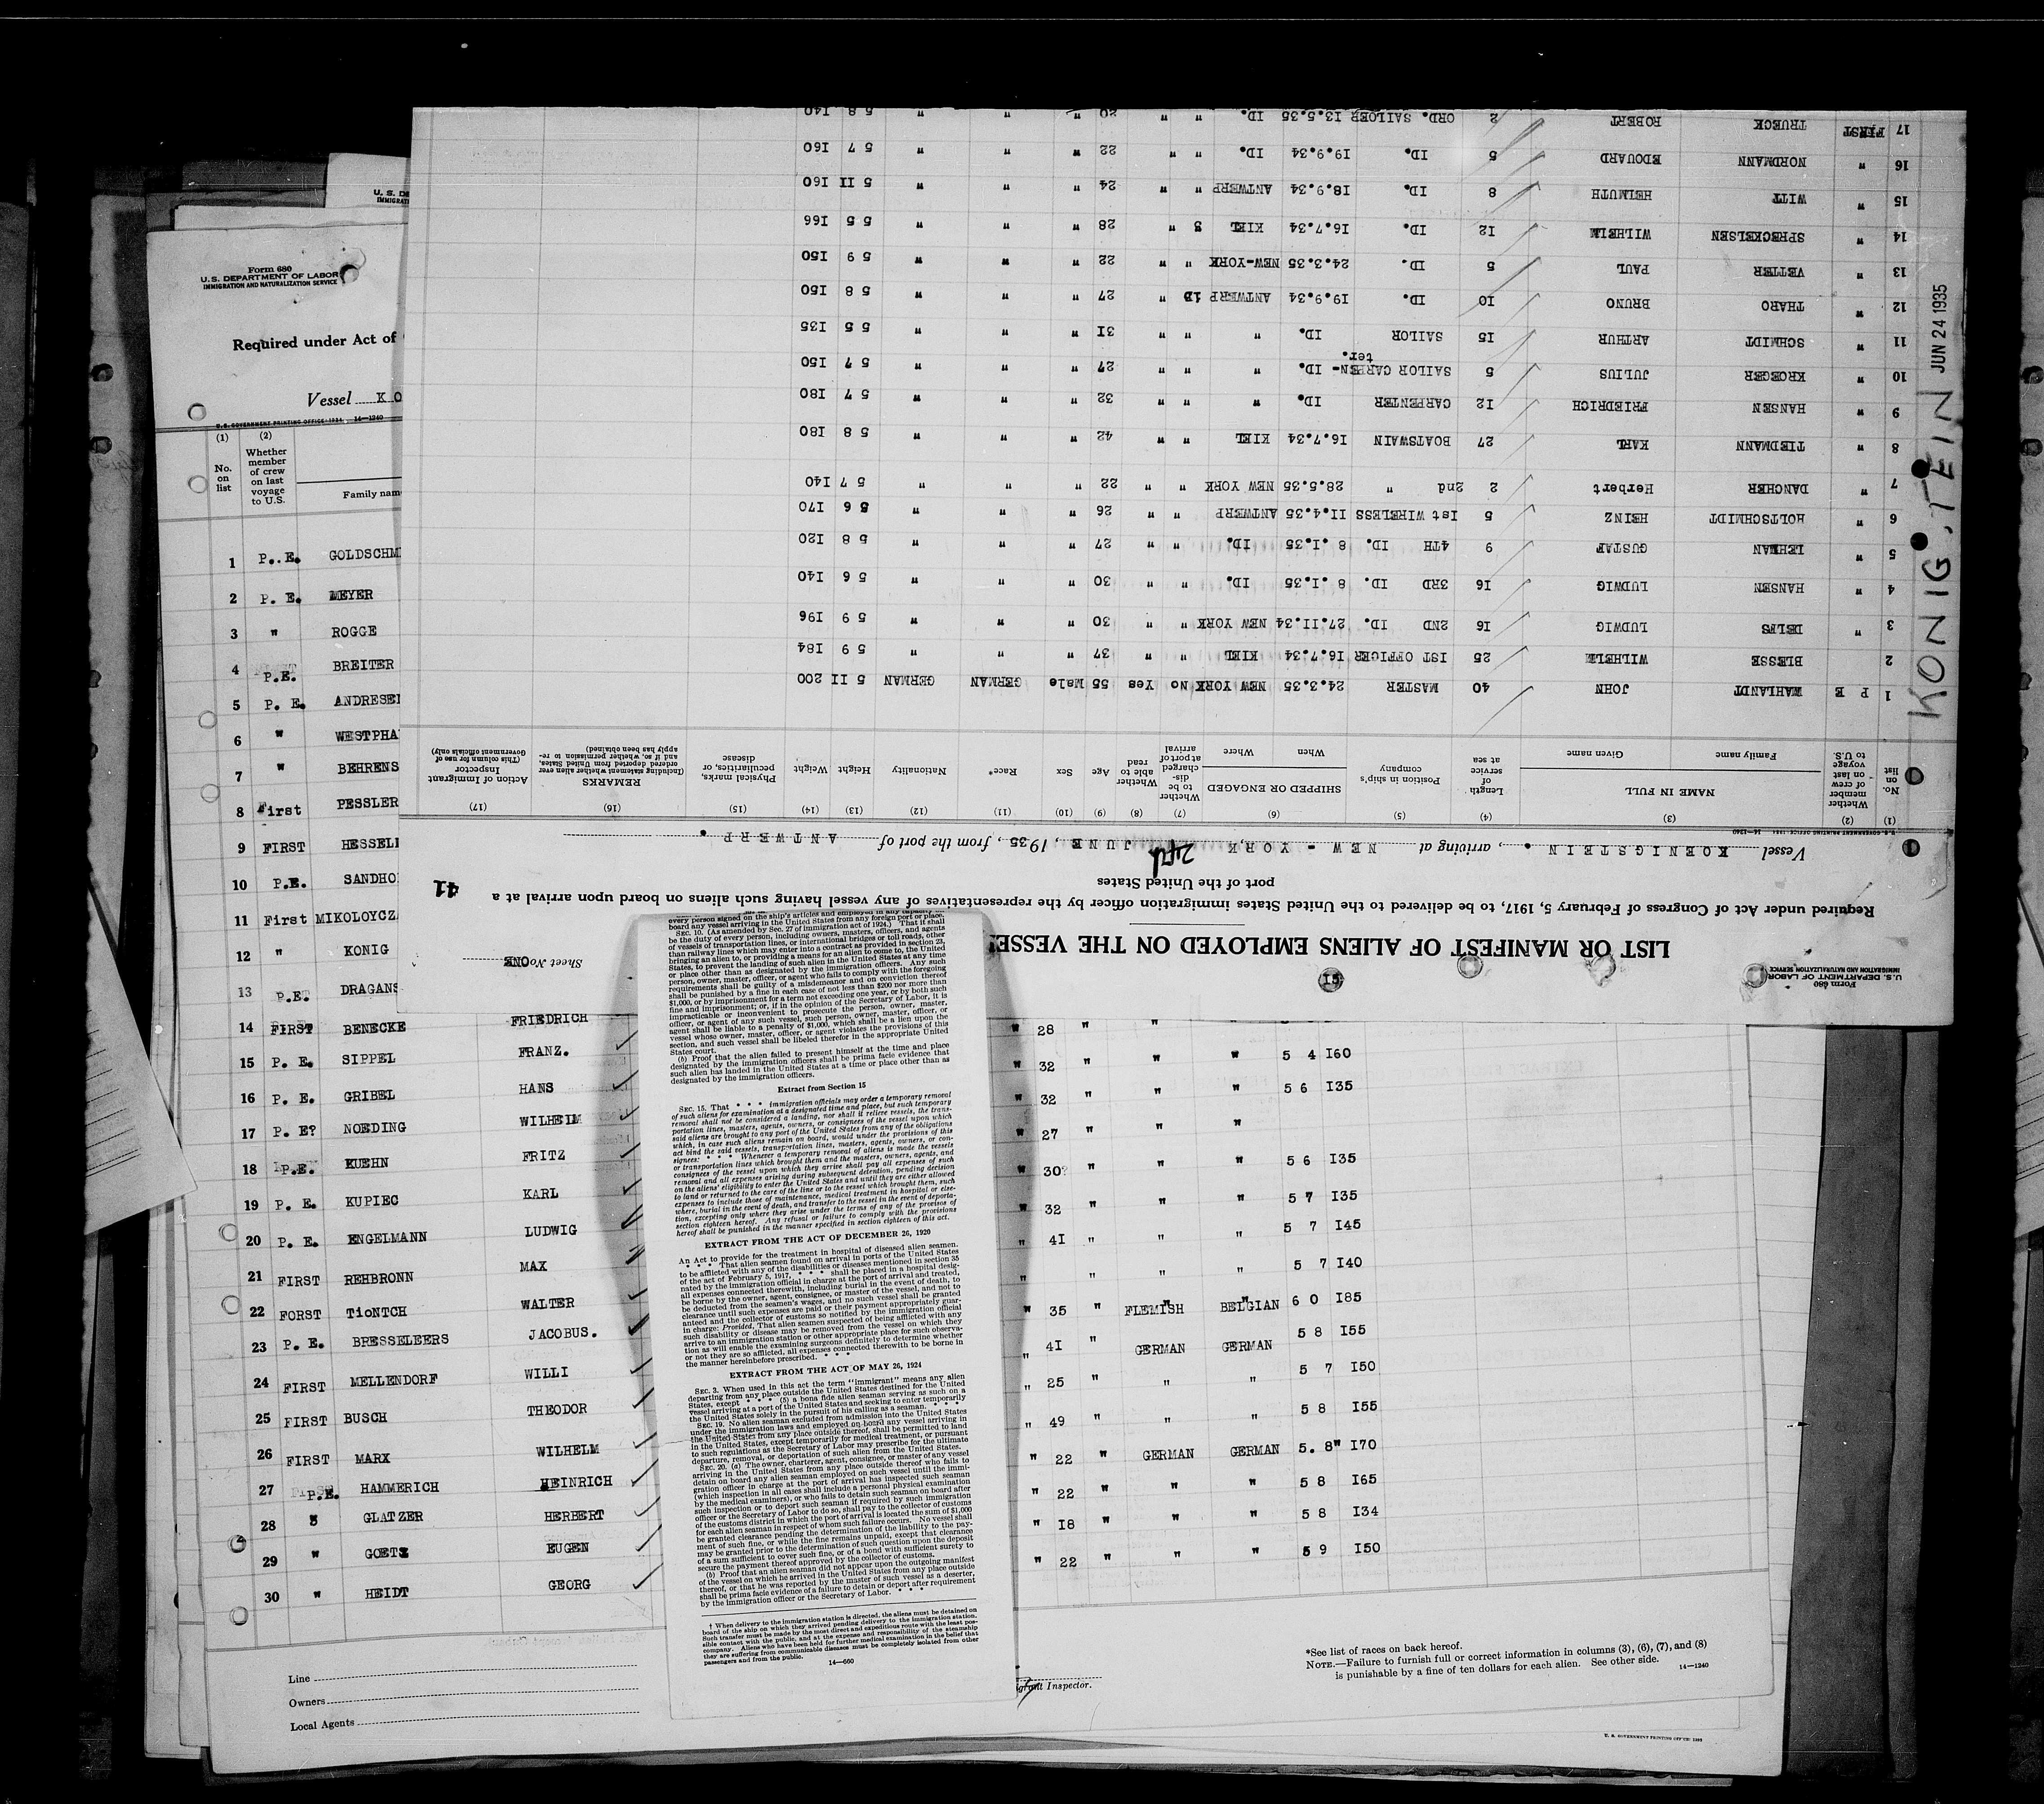 U. S. DE
IMMIGRA
Form 680
U. S. DEPARTMENT OF LABOR
IMMIGRATION AND NATURALIZATION SERVICE
Required under Act of
Vessel KO
U. S. GOVERNMENT PRINTING OFFICE: 1934 14—1240
(1) (2)
No. on list
Whether member of crew on last voyage to U.S.
Family nam
1 P..E. GOLDSCHM
2 P. E. MEYER
3 " ROGGE
4 P.E. BREITER
5 P. E. ANDRESE
6 " WESTPHA
7 " BEHRENS
8 First PESSLER
9 FIRST HESSEL
10 P.E. SANDHO
11 First MIKOLOYCZ
12 " KONIG
13 P.E. DRAGANS
14 FIRST BENECKE FRIEDRICH " 28 " "
15 P. E. SIPPEL FRANZ. " 32 " " " 5 4 I60
16 P. E. GRIBEL HANS " 32 " " " 5 6 I35
17 P. E? NOEDING WILHEIM " 27 " " "
18 P.E. KUEHN FRITZ " 30? " " " 5 6 I35
19 P. E. KUPIEC KARL " 32 " " " 5 7 I35
20 P. E. ENGELMANN LUDWIG " 4I " " " 5 7 I45
21 FIRST REHBRONN MAX " " " " 5 7 I40
22 FORST TioNTCH WALTER " 35 " FLEMISH BELGIAN 6 0 I85
23 P. E. BRESSELEERS JACOBUS. " 4I " GERMAN GERMAN 5 8 I55
24 FIRST MELLENDORF WILLI " 25 " " " 5 7 I50
25 FIRST BUSCH THEODOR " 49 " " " 5 8 I55
26 FIRST MARX WILHELM " 22 " GERMAN GERMAN 5. 8" I70
27 P.E. HAMMERICH HEINRICH " 22 " " " 5 8 I65
28 " GLATZER HERBERT " I8 " " " 5 8 I34
29 " GOETZ EUGEN " 22 " " " 5 9 I50
30 " HEIDT GEORG
Line
Owners
Local Agents
Immigrant Inspector.
*See list of races on back hereof.
NOTE.—Failure to furnish full or correct information in columns (3), (6), (7), and (8)
is punishable by a fine of ten dollars for each alien. See other side. 14—1240
U. S. GOVERNMENT PRINTING OFFICE: 1933
every person signed on the ship's articles and employed in any capacity
board any vessel arriving in the United States from any foreign port or place.
SEC. 10. (As amended by Sec. 27 of immigration act of 1924.) That it shall
be the duty of every person, including owners, masters, officers, and agents
of vessels of transportation lines, or international bridges or toll roads, other
than railway lines which may enter into a contract as provided in section 23,
bringing an alien to, or providing a means for an alien to come to, the United
States, to prevent the landing of such alien in the United States at any time
or place other than as designated by the immigration officers. Any such
person, owner, master, officer, or agent who fails to comply with the foregoing
requirements shall be guilty of a misdemeanor and on conviction thereof
shall be punished by a fine in each case of not less than $200 nor more than
$1,000, or by imprisonment for a term not exceeding one year, or by both such
fine and imprisonment; or, if in the opinion of the Secretary of Labor, it is
impracticable or inconvenient to prosecute the person, owner, master,
officer, or agent of any such vessel, such person, owner, master, officer, or
agent shall be liable to a penalty of $1,000, which shall be a lien upon the
vessel whose owner, master, officer, or agent violates the provisions of this
section, and such vessel shall be libeled therefor in the appropriate United
States court.
(b) Proof that the alien failed to present himself at the time and place
designated by the immigration officers shall be prima facie evidence that
such alien has landed in the United States at a time or place other than as
designated by the immigration officers.
Extract from Section 15
SEC. 15. That * * * immigration officials may order a temporary removal
of such aliens for examination at a designated time and place, but such temporary
removal shall not be considered a landing, nor shall it relieve vessels, the trans-
portation lines, masters, agents, owners, or consignees of the vessel upon which
said aliens are brought to any port of the United States from any of the obligations
which, in case such aliens remain on board, would under the provisions of this
act bind the said vessels, transportation lines, masters, agents, owners, or con-
signees: * * * Whenever a temporary removal of aliens is made the vessels
or transportation lines which brought them and the masters, owners, agents, and
consignees of the vessel upon which they arrive shall pay all expenses of such
removal and all expenses arising during subsequent detention, pending decision
on the aliens' eligibility to enter the United States and until they are either allowed
to land or returned to the care of the line or to the vessel which brought them, such
expenses to include those of maintenance, medical treatment in hospital or else-
where, burial in the event of death, and transfer to the vessel in the event of deporta-
tion, excepting only where they arise under the terms of any of the provisos of
section eighteen hereof. Any refusal or failure to comply with the provisions
hereof shall be punished in the manner specified in section eighteen of this act.
EXTRACT FROM THE ACT OF DECEMBER 26, 1920
An Act to provide for the treatment in hospital of diseased alien seamen.
* * * That alien seamen found on arrival in ports of the United States
to be afflicted with any of the disabilities or diseases mentioned in section 35
of the act of February 5, 1917, * * * shall be placed in a hospital desig-
nated by the immigration official in charge at the port of arrival and treated,
all expenses connected therewith, including burial in the event of death, to
be borne by the owner, agent, consignee, or master of the vessel, and not to
be deducted from the seamen's wages, and no such vessel shall be granted
clearance until such expenses are paid or their payment appropriately guar-
anteed and the collector of customs so notified by the immigration official
in charge: Provided, That alien seamen suspected of being afflicted with any
such disability or disease may be removed from the vessel on which they
arrive to an immigration station or other appropriate place for such observa-
tion as will enable the examining surgeons definitely to determine whether
or not they are so afflicted, all expenses connected therewith to be borne in
the manner hereinbefore prescribed. * * *
EXTRACT FROM THE ACT OF MAY 26, 1924
SEC. 3. When used in this act the term "immigrant" means any alien
departing from any place outside the United States destined for the United
States, except * * * (5) a bona fide alien seaman serving as such on a
vessel arriving at a port of the United States and seeking to enter temporarily
the United States solely in the pursuit of his calling as a seaman. * * *
SEC. 19. No alien seaman excluded from admission into the United States
under the immigration laws and employed on board any vessel arriving in
the United States from any place outside thereof, shall be permitted to land
in the United States, except temporarily for medical treatment, or pursuant
to such regulations as the Secretary of Labor may prescribe for the ultimate
departure, removal, or deportation of such alien from the United States.
SEC. 20. (a) The owner, charterer, agent, consignee, or master of any vessel
arriving in the United States from any place outside thereof who fails to
detain on board any alien seaman employed on such vessel until the immi-
gration officer in charge at the port of arrival has inspected such seaman
(which inspection in all cases shall include a personal physical examination
by the medical examiners), or who fails to detain such seaman on board after
such inspection or to deport such seaman if required by such immigration
officer or the Secretary of Labor to do so, shall pay to the collector of customs
of the customs district in which the port of arrival is located the sum of $1,000
for each alien seaman in respect of whom such failure occurs. No vessel shall
be granted clearance pending the determination of the liability to the pay-
ment of such fine, or while the fine remains unpaid, except that clearance
may be granted prior to the determination of such question upon the deposit
of a sum sufficient to cover such fine, or of a bond with sufficient surety to
secure the payment thereof approved by the collector of customs.
(b) Proof that an alien seaman did not appear upon the outgoing manifest
of the vessel on which he arrived in the United States from any place outside
thereof, or that he was reported by the master of such vessel as a deserter,
shall be prima facie evidence of a failure to detain or deport after requirement
by the immigration officer or the Secretary of Labor. * * *
† When delivery to the immigration station is directed, the aliens must be detained on
board of the ship on which they arrived pending delivery to the immigration station.
Such transfer must be made by the most direct and expeditious route with the least pos-
sible contact with the public, and at the expense and responsibility of the steamship
company. Aliens who have been held for further medical examination in the belief that
they are suffering from communicable diseases must be completely isolated from other
passengers and from the public.
14—660
Form 680
U. S. DEPARTMENT OF LABOR
IMMIGRATION AND NATURALIZATION SERVICE
19
Sheet No. ONE
LIST OR MANIFEST OF ALIENS EMPLOYED ON THE VESSE
Required under Act of Congress of February 5, 1917, to be delivered to the United States immigration officer by the representatives of any vessel having such aliens on board upon arrival at a
port of the United States
41
Vessel KOENIGSTEIN., arriving at NEW-YORK, 24th JUNE, 1935, from the port of ANTWERP.
(1) (2) (3) (4) (5) (6) (7) (8) (9) (10) (11) (12) (13) (14) (15) (16) (17)
No. on list
Whether member of crew on last voyage to U.S.
NAME IN FULL
Family name Given name
Length of service at sea
Position in ship's company
SHIPPED OR ENGAGED
When Where
Whether to be discharged at port of arrival
Whether able to read
Age Sex Race* Nationality Height Weight
Physical marks, peculiarities, or disease
REMARKS
(Including statement whether alien ever ordered deported from United States, and if so, whether permission to reapply has been obtained)
Action of Immigrant Inspector
(This column for use of Government officials only)
1 P E MAHLANDT JOHN 40 MASTER 24.3.35 NEW YORK No Yes 55 Male GERMAN GERMAN 5 II 200
2 BLESSE WILHELM 25 IST OFFICER I6.7.34 KIEL " " 37 " " " 5 9 I84
3 " DELFS LUDWIG I6 2ND ID. 27.II.34 NEW YORK " " 30 " " " 5 9 I96
4 " HANSEN LUDWIG I6 3RD ID. 8 .I.35 ID. " " 30 " " " 5 6 I40
5 " LEHMAN GUSTAF 9 4TH ID. 8 .I.35 ID. " " 27 " " " 5 8 I20
6 " HOLTSCHMIDT HEINZ 5 Ist WIRELESS II.4.35 ANTWERP " " 26 " " " 5 6 I70
7 " DANCHER Herbert 2 2nd " 28.5.35 NEW YORK " " 22 " " " 5 7 I40
8 " TIEDMANN KARL 27 BOATSWAIN I6.7.34 KIEL " " 42 " " " 5 8 I80
9 " HANSEN FRIEDRICH I2 CARPENTER ID. " " " 32 " " " 5 7 I80
10 " KROEGER JULIUS 5 SAILOR CARPEN-ter. ID. " " " 27 " " " 5 7 I50
11 " SCHMIDT ARTHUR I5 SAILOR ID. " " " 3I " " " 5 5 I35
12 " THARO BRUNO I0 ID. I9.9.34 ANTWERP " 27 " " " 5 8 I50
13 " VETTER PAUL 5 ID. 24.3.35 NEW-YORK " " 22 " " " 5 9 I50
14 " SPRECKELSEN WILHELM I2 ID. I6.7.34 KIEL " 28 " " " 5 5 I66
15 " WITT HELMUTH 8 ID. I8.9.34 ANTWERP " " 24 " " " 5 II I60
16 " NORDMANN EDOUARD 5 ID. I9.9.34 ID. " " 22 " " " 5 7 I60
17 FIRST TRUECK ROBERT 2 ORD. SAILOR I3.5.35 ID. " " 20 " " " 5 8 I40
KONIGSTEIN JUN 24 1935